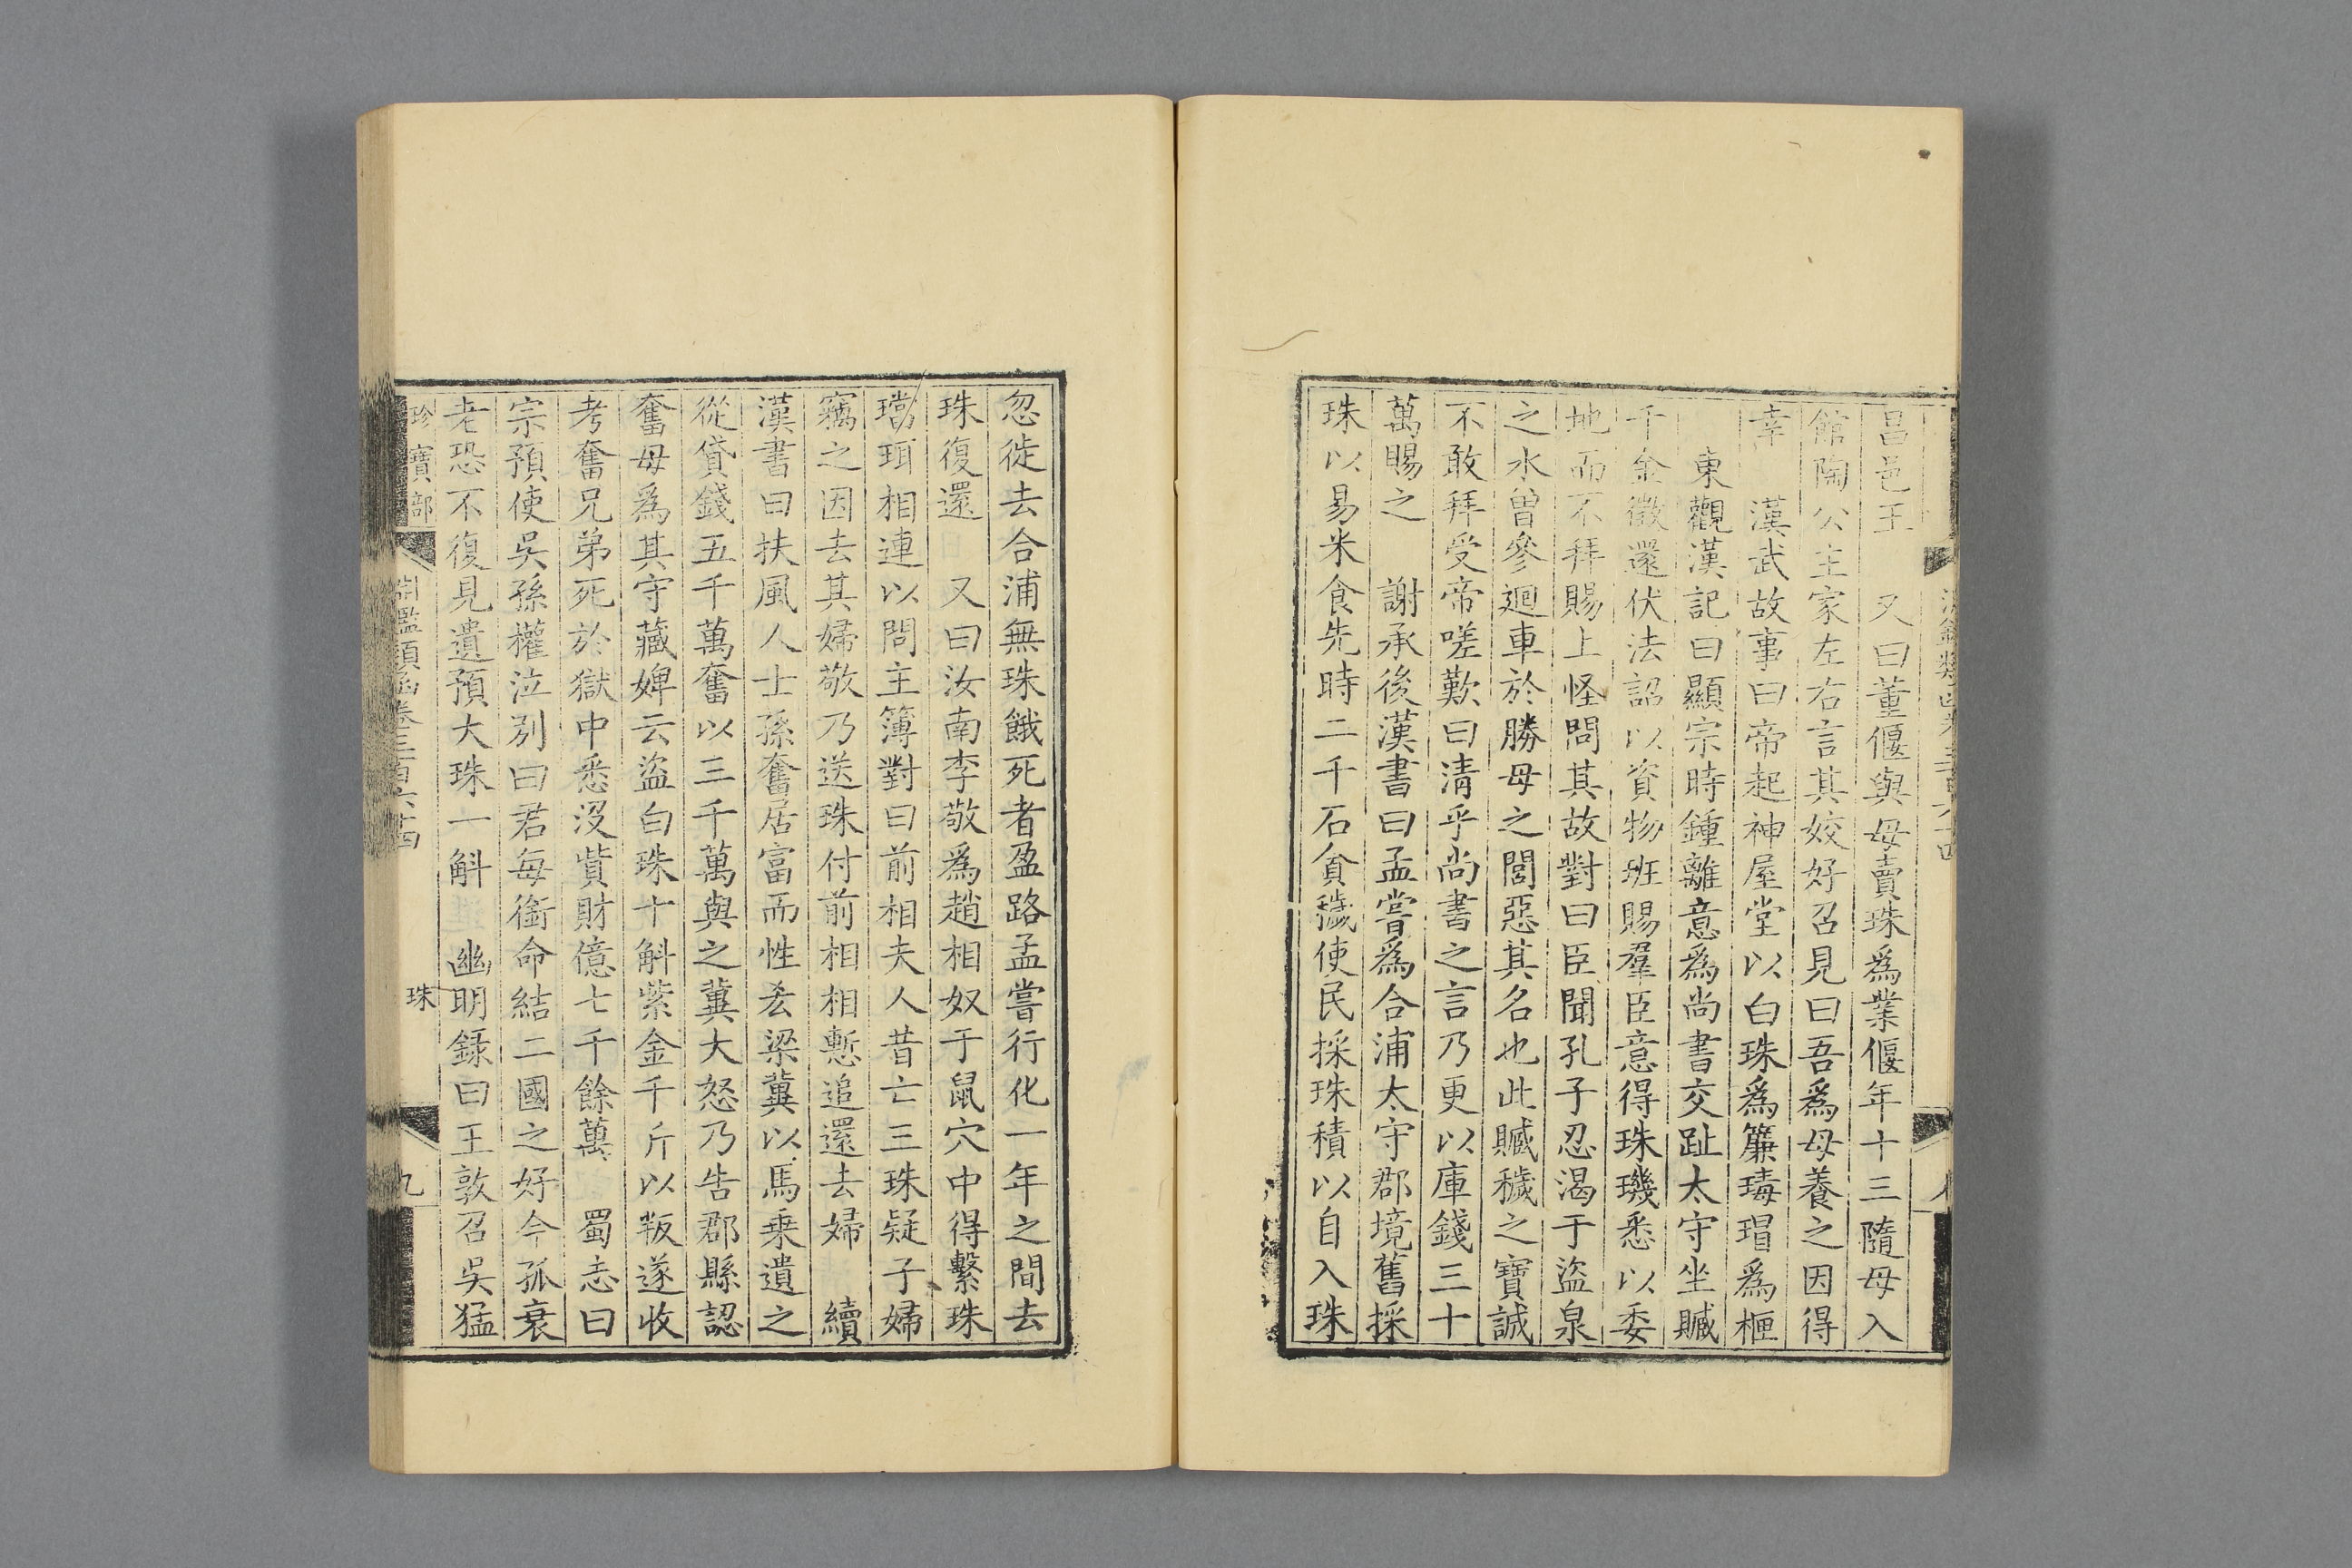 昌邑王　又曰董偃與母賣珠爲業偃年十三隨母入
館陶公主家左右言其姣好召見曰吾爲母養之因得
幸　漢武故事曰帝起神屋堂以白珠爲簾瑇瑁爲柙
東觀漢記曰顯宗時鍾離意爲尚書交趾太守坐贓
千金徵還伏法詔以資物班賜羣臣意得珠璣悉以委
地而不拜賜上怪問其故對曰臣聞孔子忍渴于盜泉
之水曾參迴車於勝母之閭惡其名也此贓穢之寶誠
不敢拜受帝嗟歎曰清乎尚書之言乃更以庫錢三十
萬賜之　謝承後漢書曰孟嘗爲合浦太守郡境舊採
珠以易米食先時二千石貪穢使民採珠積以自入珠
忽徙去合浦無珠餓死者盈路孟嘗行化一年之間去
珠復還　又曰汝南李敬爲趙相奴于鼠穴中得繫珠
璫珥相連以問主簿對曰前相夫人昔亡三珠疑子婦
竊之因去其婦敬乃送珠付前相相慙追還去婦　續
漢書曰扶風人士孫奮居富而性𠫤梁冀以馬乗遺之
從貸錢五千萬奮以三千萬與之冀大怒乃告郡縣認
奮母爲其守藏婢云盜白珠十斛紫金千斤以叛遂收
考奮兄弟死於獄中悉沒貲財億七千餘萬　蜀志曰
宗預使吳孫權泣別曰君每銜命結二國之好今孤衰
老恐不復見遺預大珠一斛　幽明錄曰王敦召吳猛
珍寶部　淵鑑類函卷三百六十四　珠　九